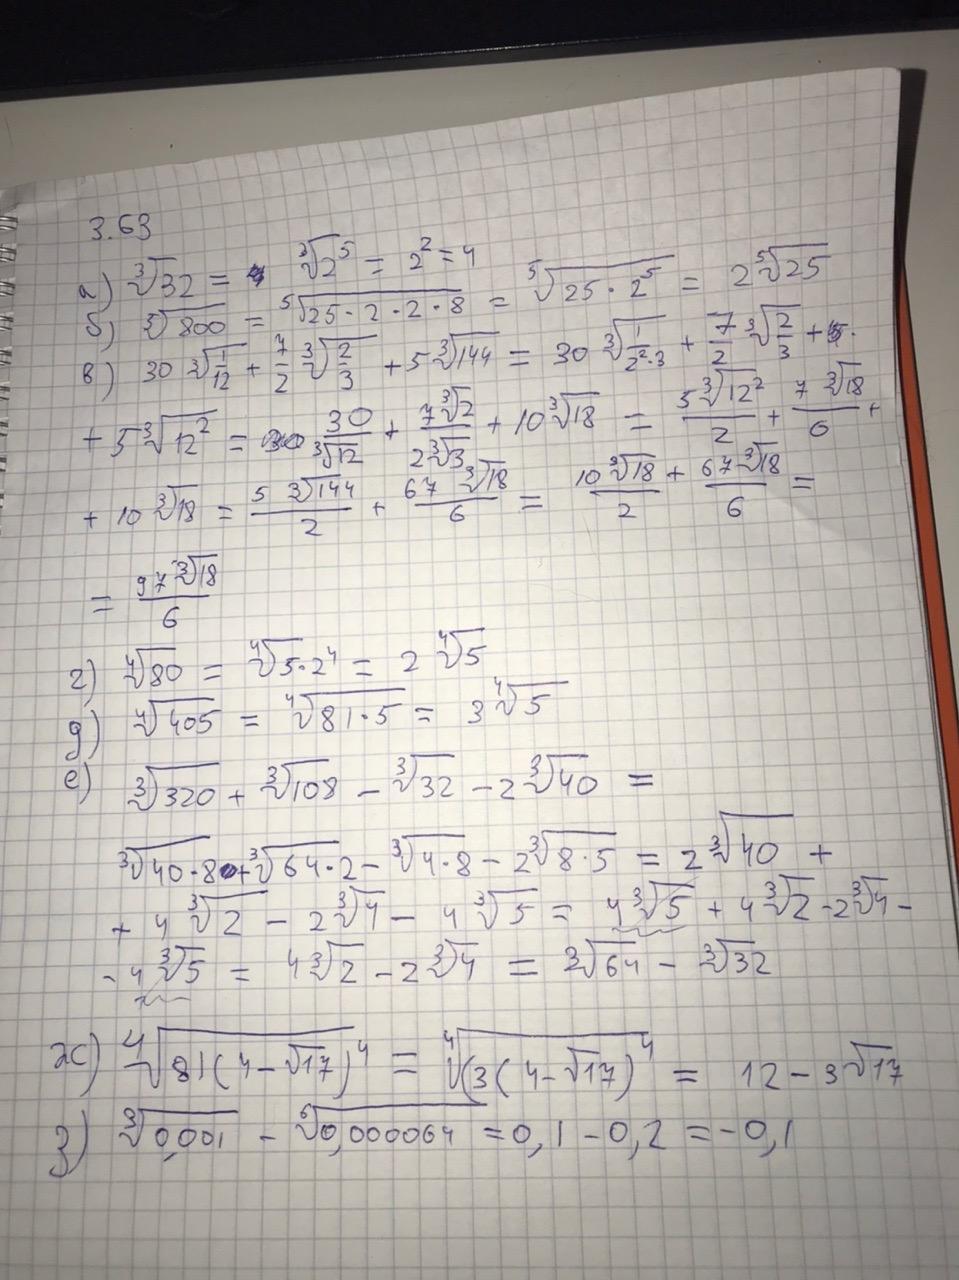 3.63
а) ∛32 = ∛2⁵ = 2² = 4
б) ⁵√800 = ⁵√25·2·2·8 = ⁵√25·2⁵ = 2⁵√25
в) 30 ∛1/12 + 7/2 ∛2/3 + 5∛144 = 30 ∛1/2²·3 + 7/2 ∛2/3 +
+ 5∛12² = 30/∛12 + 7∛2/2∛3 + 10∛18 = 5∛12²/2 + 7∛18/6 +
+ 10∛18 = 5 ∛144/2 + 67 ∛18/6 = 10∛18/2 + 67∛18/6 =
= 97∛18/6
г) ⁴√80 = ⁴√5·2⁴ = 2 ⁴√5
д) ⁴√405 = ⁴√81·5 = 3⁴√5
е) ∛320 + ∛108 - ∛32 - 2∛40 =
∛40·8 + ∛64·2 - ∛4·8 - 2∛8·5 = 2∛40 +
+ 4∛2 - 2∛4 - 4∛5 = 4∛5 + 4∛2 - 2∛4 -
- 4∛5 = 4∛2 - 2∛4 = ∛64 - ∛32
ж) ⁴√81(4-√17)⁴ = ⁴√(3(4-√17)⁴ = 12 - 3√17
з) ∛0,001 - ⁶√0,000064 = 0,1 - 0,2 = -0,1